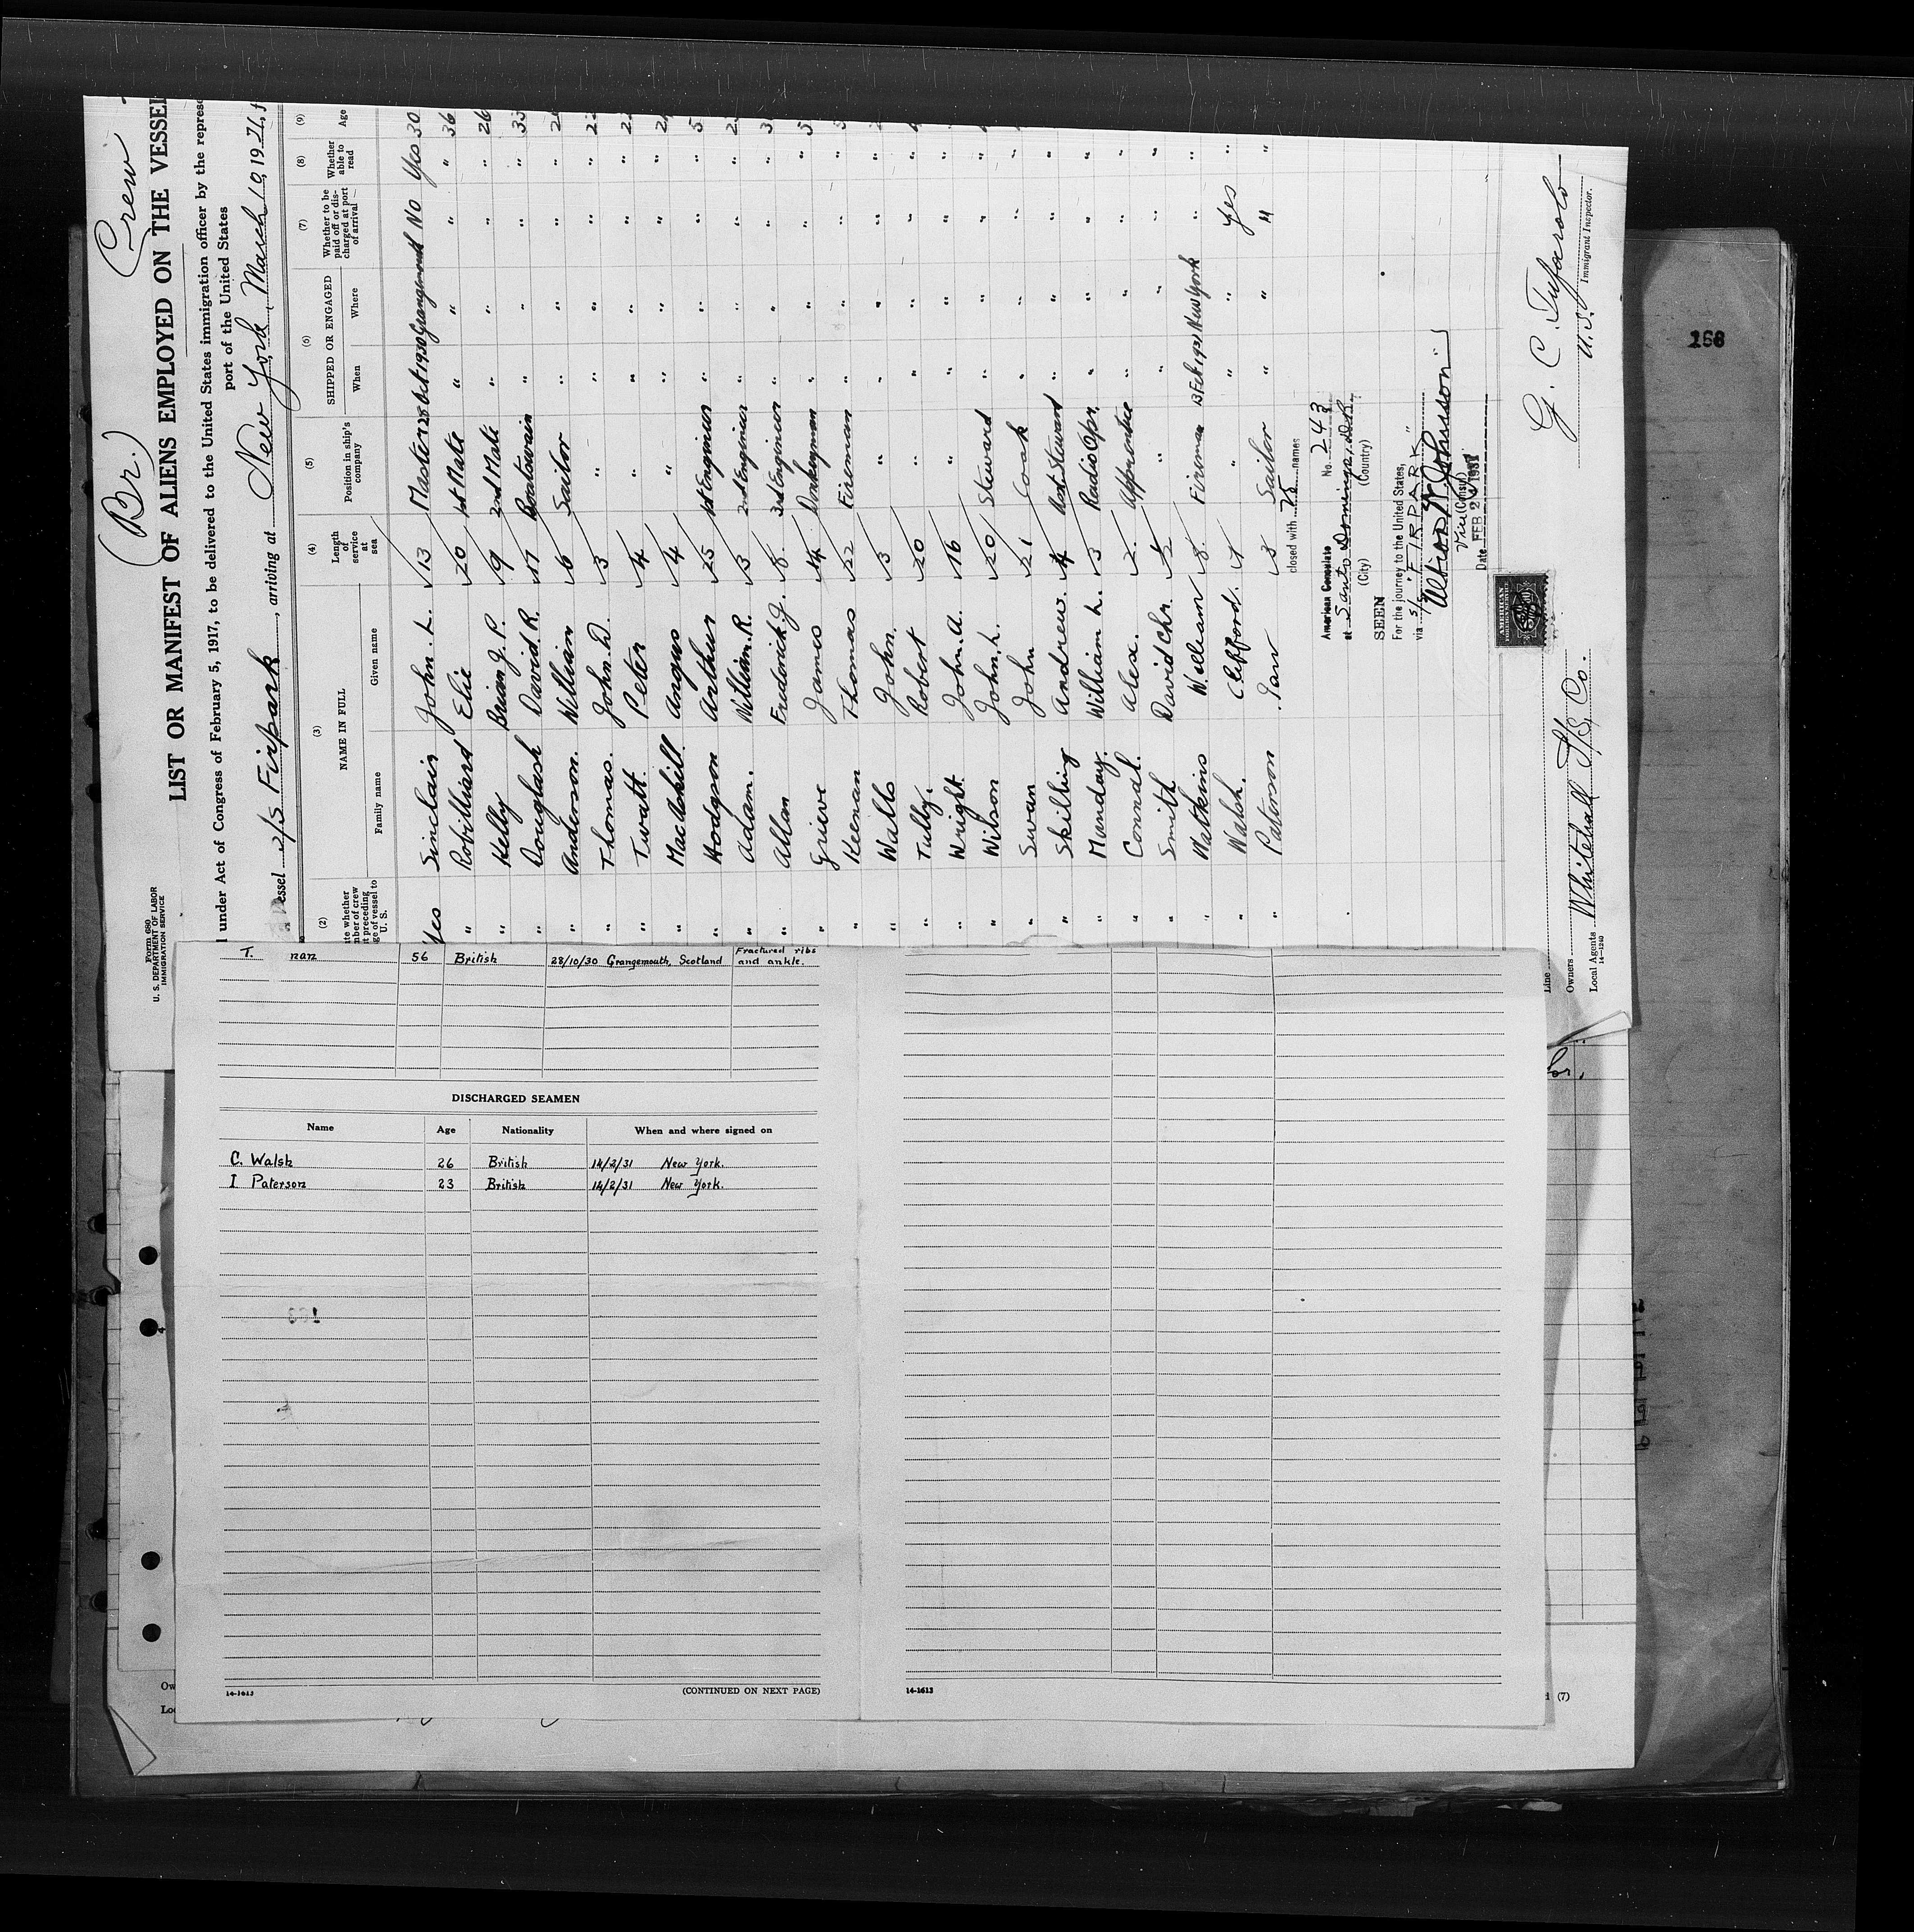 (Br.) Crew
Form 680
U. S. DEPARTMENT OF LABOR
IMMIGRATION SERVICE
LIST OR MANIFEST OF ALIENS EMPLOYED ON THE VESSEL
under Act of Congress of February 5, 1917, to be delivered to the United States immigration officer by the represe
port of the United States
Vessel S/S Firpark, arriving at New York, March 10, 1931, f
(2) (3) (4) (5) (6) (7) (8) (9)
NAME IN FULL
SHIPPED OR ENGAGED
Family name Given name
Length of service at sea
Position in ship's company
When Where
Whether to be paid off or discharged at port of arrival
Whether able to read
Age
Yes Sinclair John. L. 13 Master 28 Oct 1930 Grangemouth NO Yes 30
" Robilliard Elie 20 1st Mate " " " " 36
" Kelly Brian J. P. 9 2nd Mate " " " " 26
" Douglash David R. 17 Boatswain " " " " 33
" Anderson. William 6 Sailor " " " "
" Thomas. John. D. 3 " " " " "
" Twatt. Peter 4 " " " " "
" MacAskill Angus 4 " " " " "
" Hodgson Arthur 25 1st Engineer " " " "
" Adam. William. R. 3 2nd Engineer " " " "
" Allan Frederick J. 8 3rd Engineer " " " "
" Grieve James 14 Donkeyman " " " "
" Keenan Thomas 22 Fireman " " " "
" Walls John. 3 " " " " "
" Tully. Robert 20 " " " " "
" Wright. John. A. 16 " " " " "
" Wilson John. L. 20 Steward " " " "
" Swan John 21 Cook " " " "
" Skilling Andrew. 4 Asst Steward " " " "
" Munday. William L. 3 Radio Opr. " " " "
" Connal. Alex. 2. Apprentice " " " "
" Smith David Chr. " " " " "
" Watkins William 8. Fireman 13 Feb 1931 New York " "
" Walsh. Clifford. 4 " " " Yes "
" Paterson Ian 3 Sailor " " " "
closed with 25 names
American Consulate No. 243
at Santo Domingo, D.R.
(City) (Country)
SEEN
For the journey to the United States,
via S/S "FIRPARK"
Vice Consul
Date FEB 2 1931
AMERICAN
FOREIGN SERVICE
G. C. Tufarolo
U. S. Immigrant Inspector.
Line
Owners Whitehall S/S. Co.
Local Agents
14-1240
168
T. nan 56 British 28/10/30 Grangemouth, Scotland Fractured ribs
and ankle.
DISCHARGED SEAMEN
Name Age Nationality When and where signed on
C. Walsh 26 British 14/2/31 New York.
I Paterson 23 British 14/2/31 New York.
14-1613 (CONTINUED ON NEXT PAGE)
14-1613
(7)